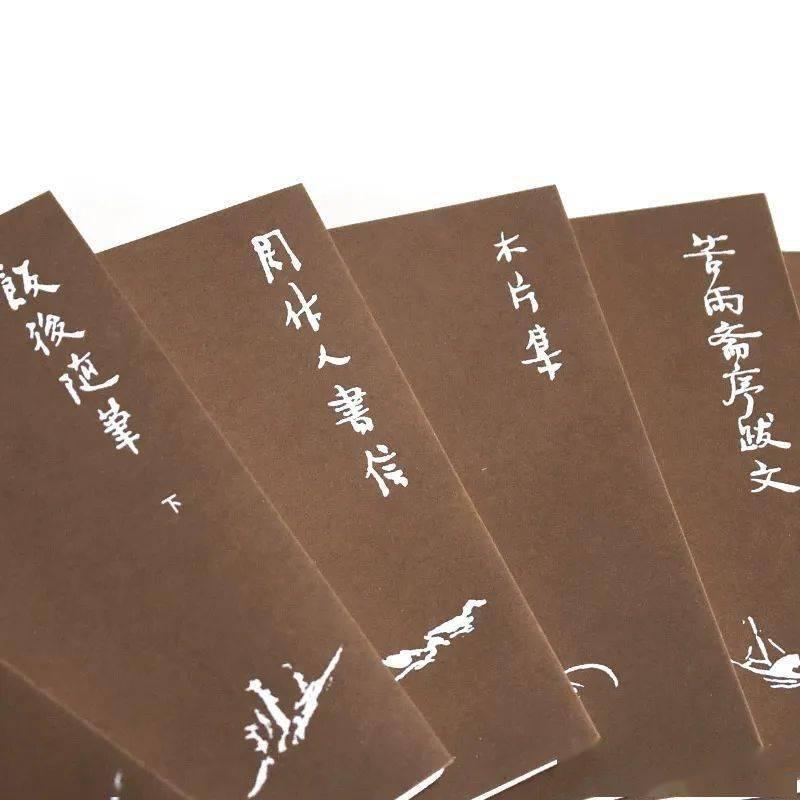 飯後随筆
下
周作人書信
木片集
苦雨斋序跋文